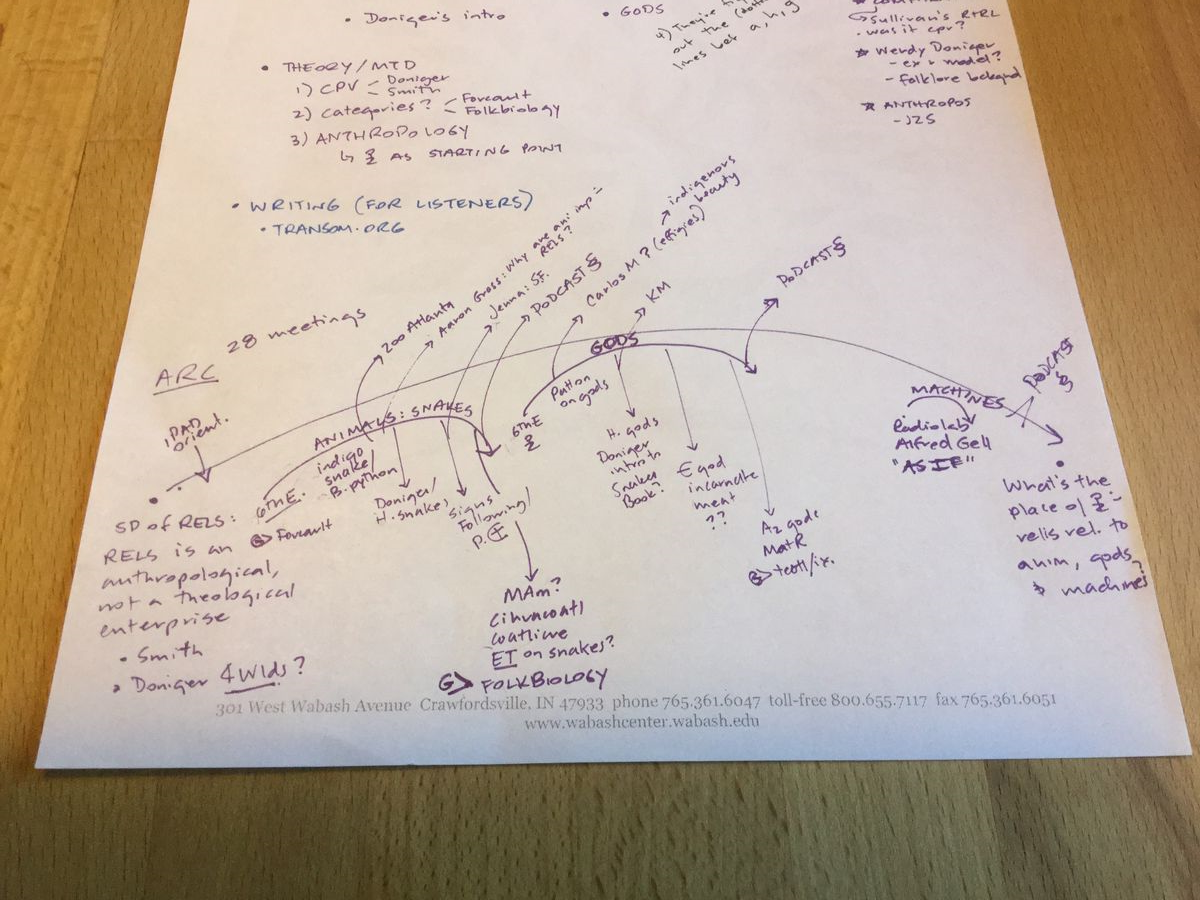 • Doniger's intro
• GODS
out the
lines bet a, h, g
Sullivan's RTRL
• was it cpr?
* Wendy Doniger
- ex & model?
- Folklore bckgnd
* ANTHROPOS
- JZS
• THEORY/MTD
1) CPV - Doniger
- Smith
2) Categories? - Forcault
- Folkbiology
3) ANTHROPOLOGY
AS STARTING POINT
• WRITING (FOR LISTENERS)
• TRANSOM.ORG
ARC
28 meetings
iPAD
orient.
Zoo Atlanta
Aaron Gross: Why are ani imp
RELS?
Jenna: S.F.
PODCAST §
Carlos M? (effigies)
indigenous
beauty
KM
PODCAST §
ANIMALS: SNAKES
GODS
MACHINES
PODCAST
§
6THE.
G> Forcault
indigo
snake/
B. python
Doniger/
H. snakes
Signs
Following/
MAm?
Cihuacoatl
Coatlicue
ET on snakes?
G> FOLKBIOLOGY
6THE
Patton
on gods
H. gods
Doniger
intro to
Snakes
Book?
E god
incarnate
meat
??
Az gods
MatR
G> teotl/ix.
Radiolab
Alfred Gell
"AS IF"
SD of RELS:
RELS is an
anthropological,
not a theological
enterprise
• Smith
• Doniger 4 Wlds?
What's the
place of
relis rel. to
anim, gods,
& machines?
301 West Wabash Avenue Crawfordsville, IN 47933 phone 765.361.6047 toll-free 800.655.7117 fax 765.361.6051
www.wabashcenter.wabash.edu